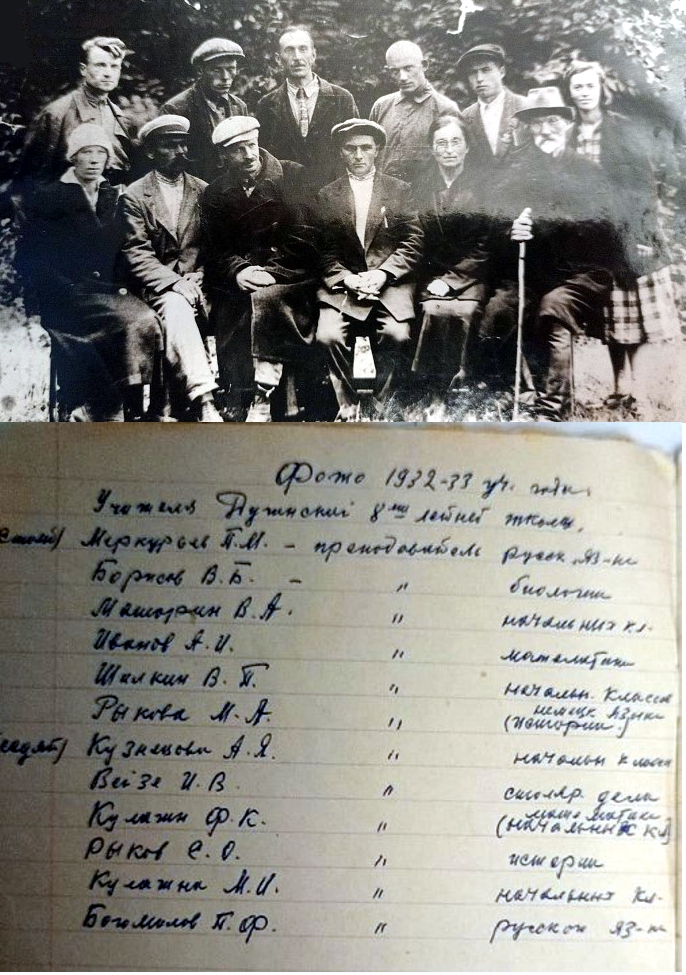 Фото 1932-33 уч. года.
Учителя 8ми летней школы.
(стоят) Меркурьев П.М. – преподаватель русск. яз-ка
Борисов В.Б. – " биологии
Машорин В.А. " начальных кл.
Иванов А.И. " математики
Шилкин В.П. " начальн. класса
Рыкова М.А. " немецк. языка
(истории)
(сидят) Кузнецова А.Я. " начальн класса
Вейзе И.В. " столяр. дела
Кулагин Ф.К. " математики
(начальных кл)
Рыков С.О. " истории
Кулагина М.И. " начальных кл.
Богомолов П.Ф. " русской яз-ка